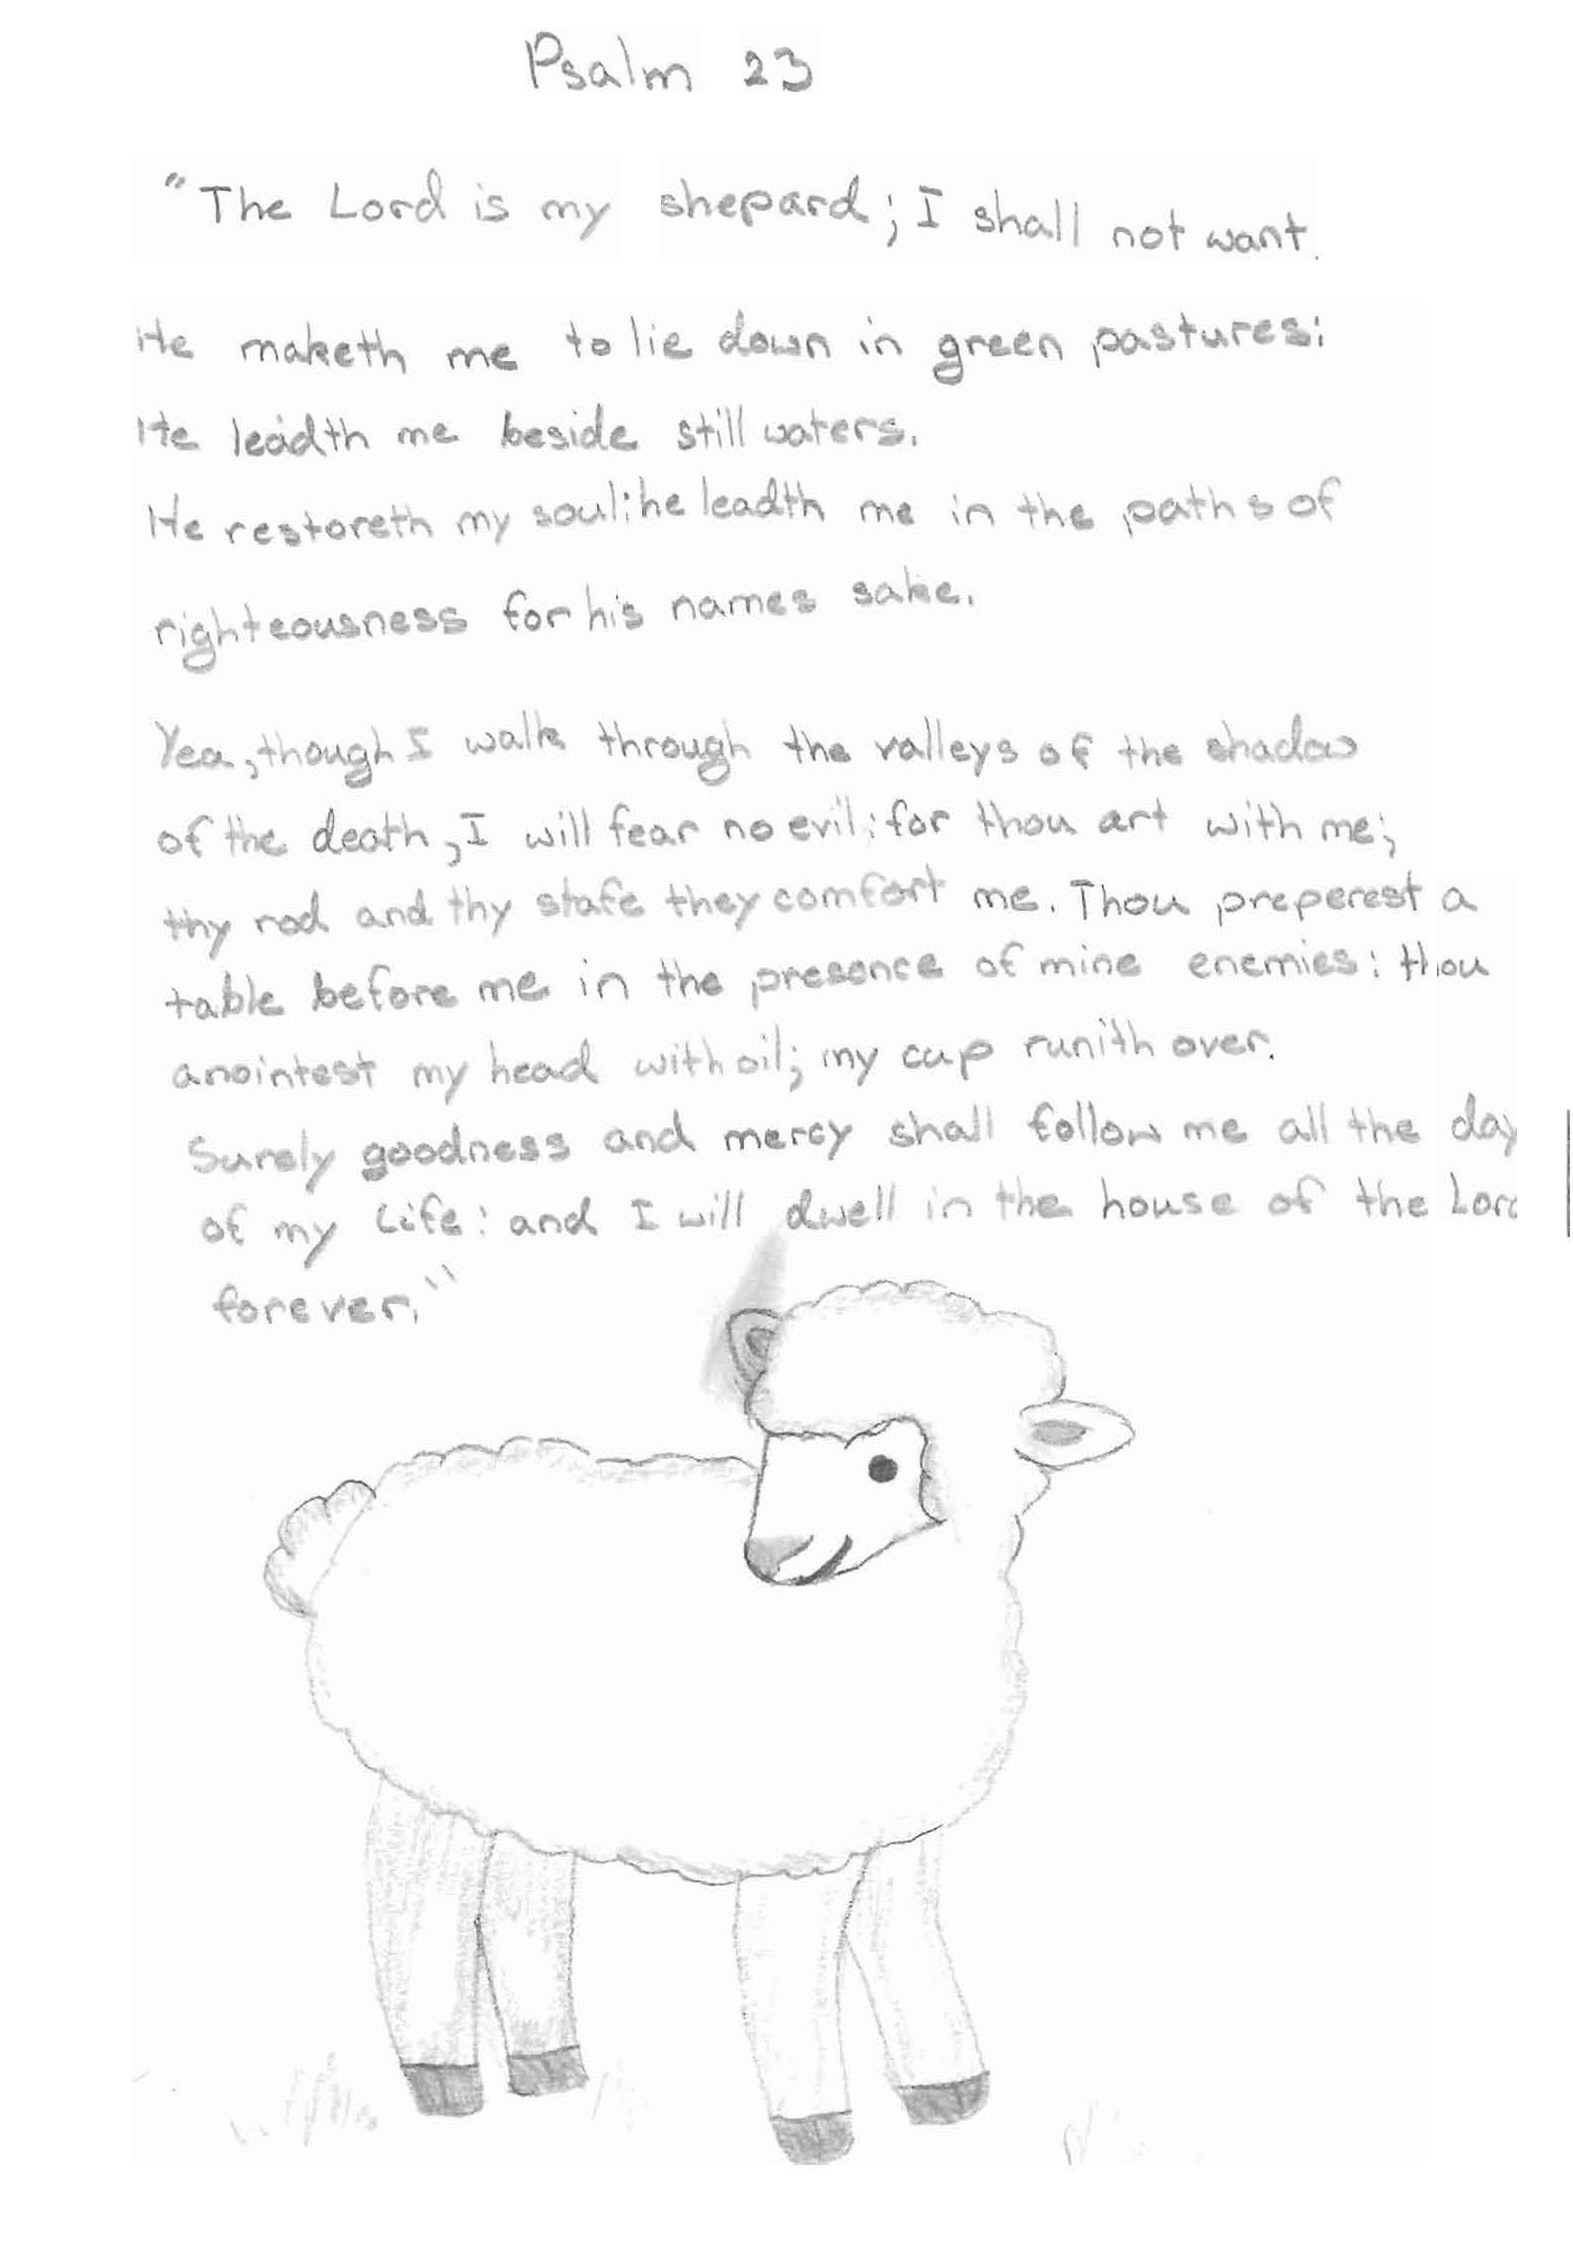 Psalm 23
"The Lord is my shepard; I shall not want.
He maketh me to lie down in green pastures:
He leadth me beside still waters.
He restoreth my soul: he leadth me in the paths of
righteousness for his names sake.
Yea, though I walk through the valleys of the shadow
of the death, I will fear no evil: for thou art with me;
thy rod and thy stafe they comfort me. Thou preperest a
table before me in the presence of mine enemies: thou
anointest my head with oil; my cup runith over.
Surely goodness and mercy shall follow me all the day
of my life: and I will dwell in the house of the Lord
forever."